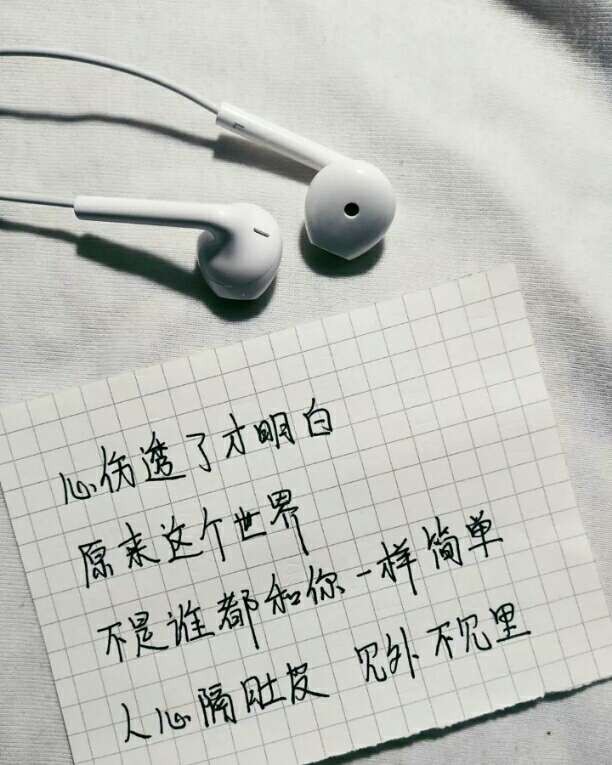 心伤透了才明白
原来这个世界
不是谁都和你一样简单
人心隔肚皮 见外不见里